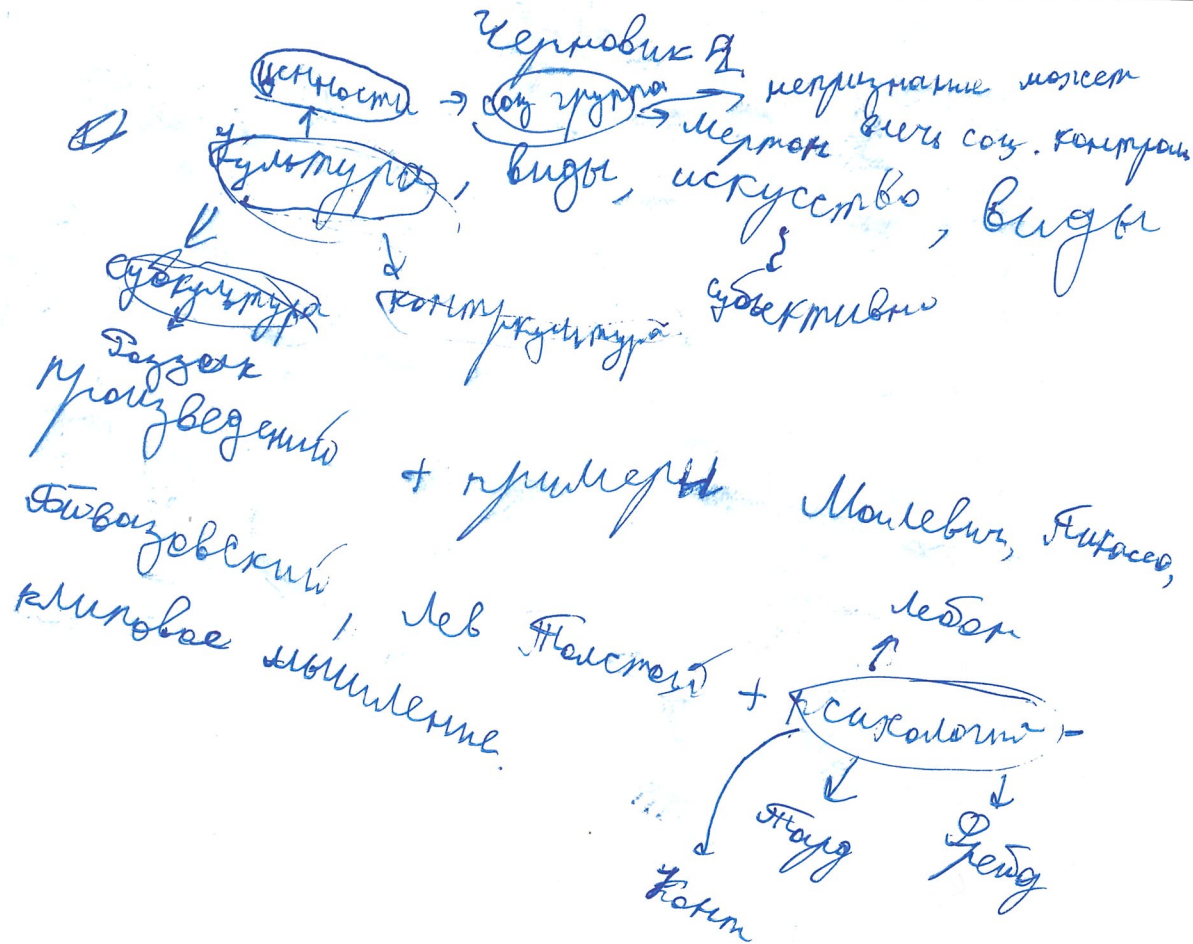 Черновик
ценности → соц группа → непризнание может
→ Мертон влечь соц. контроль
культура, виды, искусство, виды
субкультура контркультура субъективно
произведений + примеры Малевич, Пикассо,
Айвазовский, Лев Толстой + психология -
клиповое мышление.
Лебон
Тард Фрейд
Конт